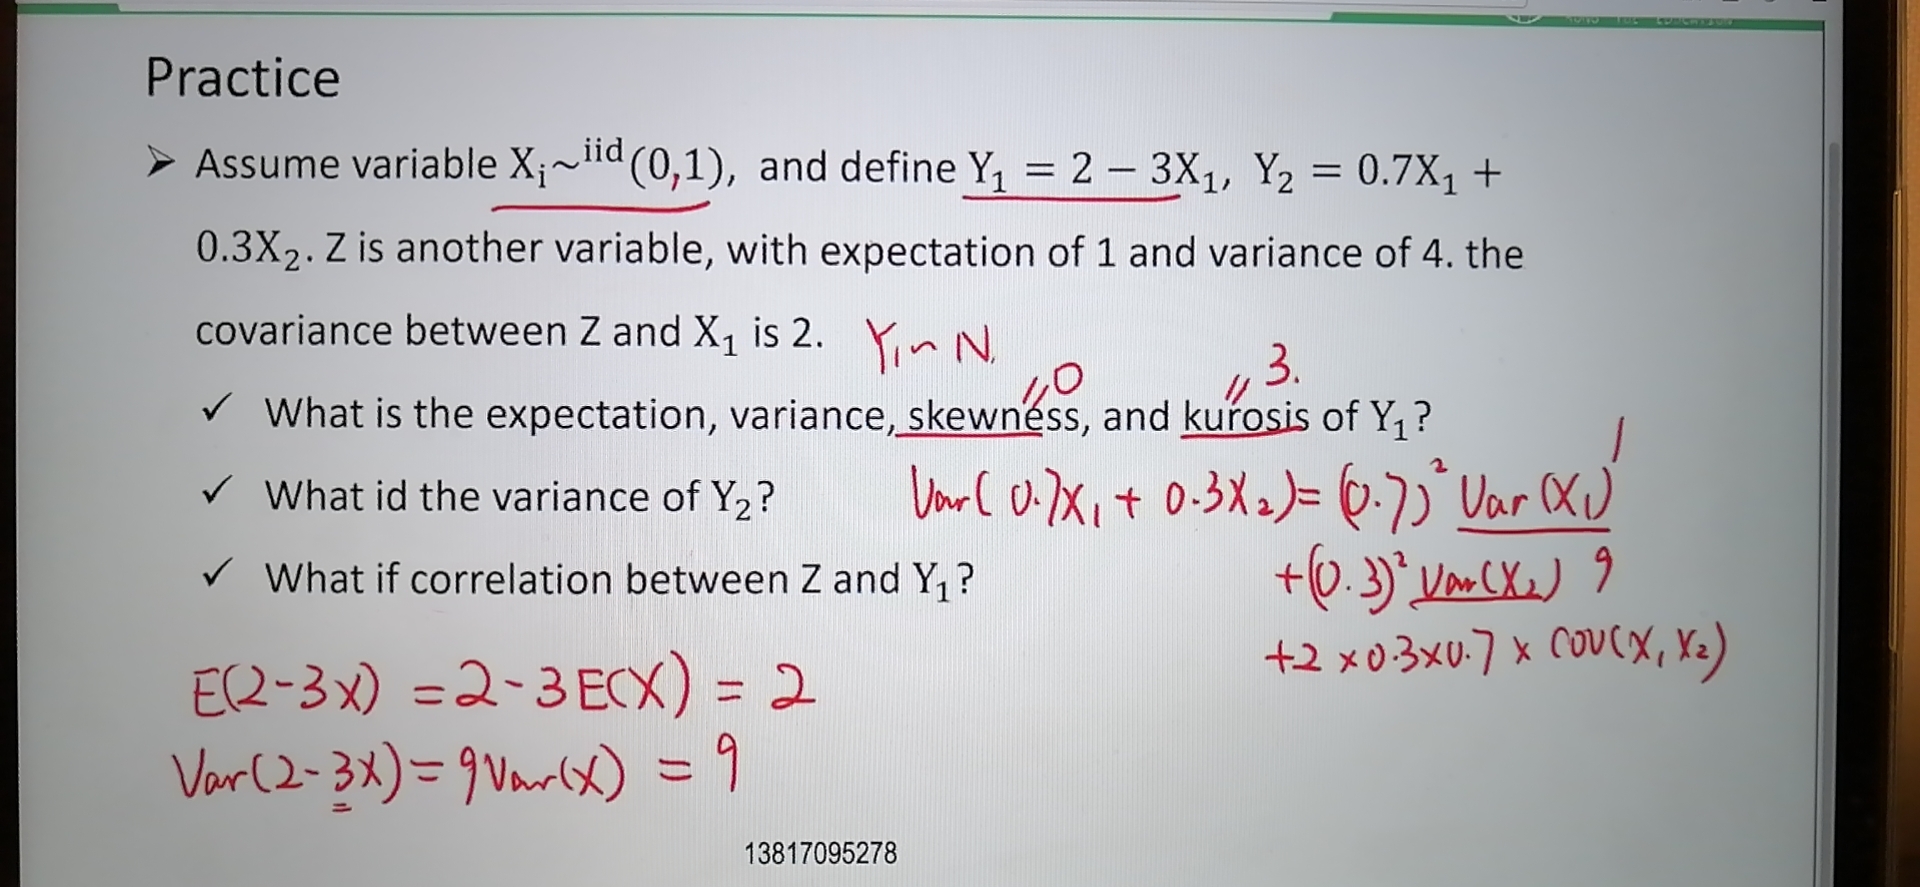 Practice
➤ Assume variable Xᵢ~ⁱⁱᵈ(0,1), and define Y₁ = 2 − 3X₁, Y₂ = 0.7X₁ +
0.3X₂. Z is another variable, with expectation of 1 and variance of 4. the
covariance between Z and X₁ is 2.
Y₁ ~ N.
∥ 0
∥ 3.
✓ What is the expectation, variance, skewness, and kurosis of Y₁?
✓ What id the variance of Y₂?
Var(0.7X₁ + 0.3X₂) = (0.7)² Var(X₁) 1
+(0.3)² Var(X₂) 9
+2×0.3×0.7×COV(X₁X₂)
✓ What if correlation between Z and Y₁?
E(2-3X) = 2-3E(X) = 2
Var(2-3X) = 9Var(X) = 9
13817095278